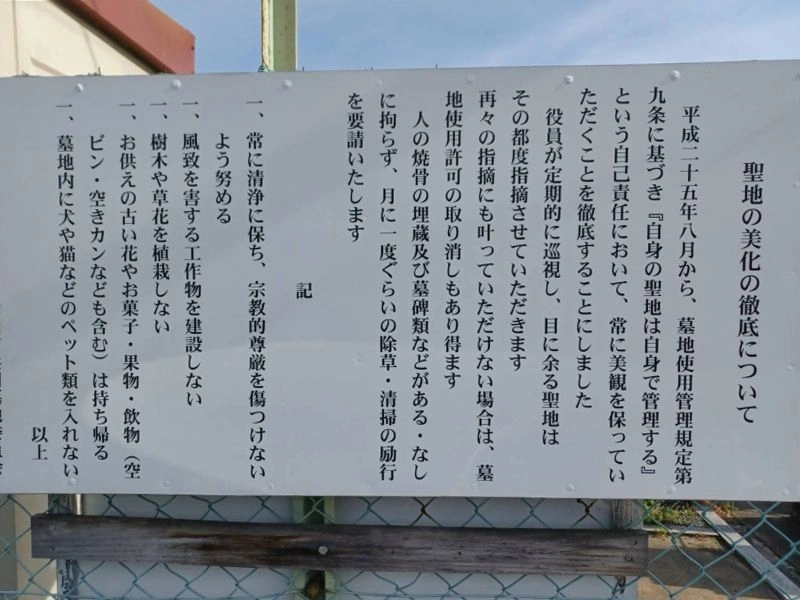 聖地の美化の徹底について
平成二十五年八月から、墓地使用管理規定第
九条に基づき『自身の聖地は自身で管理する』
という自己責任において、常に美観を保ってい
ただくことを徹底することにしました
役員が定期的に巡視し、目に余る聖地は
その都度指摘させていただきます
再々の指摘にも叶っていただけない場合は、墓
地使用許可の取り消しもあり得ます
人の焼骨の埋蔵及び墓碑類などがある・なし
に拘らず、月に一度ぐらいの除草・清掃の励行
を要請いたします
記
一、常に清浄に保ち、宗教的尊厳を傷つけない
よう努める
一、風致を害する工作物を建設しない
一、樹木や草花を植栽しない
一、お供えの古い花やお菓子・果物・飲物(空
ビン・空きカンなども含む)は持ち帰る
一、墓地内に犬や猫などのペット類を入れない
以上